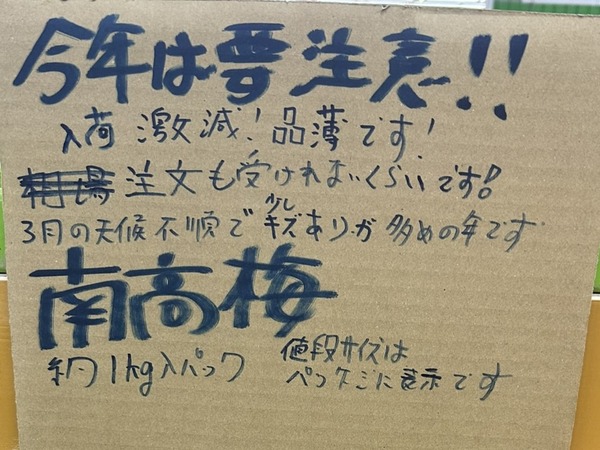 今年は要注意!!
入荷 激減! 品薄です!
注文も受けれまいくらいです!
3月の天候不順で少しキズありが多めの年です
南高梅
約1kg入パック
値段サイズは
パックごに表示です